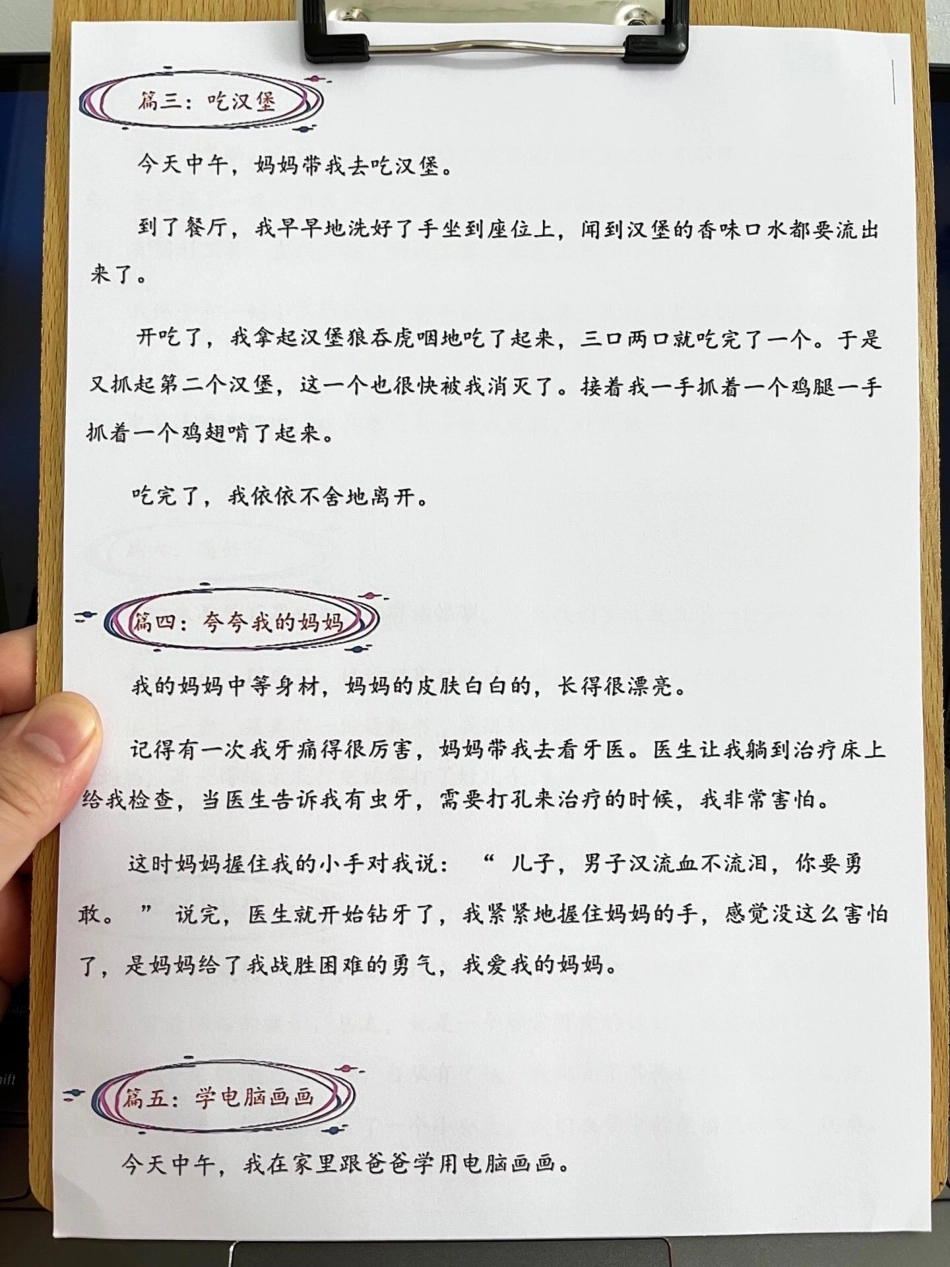 篇三：吃汉堡
今天中午，妈妈带我去吃汉堡。
到了餐厅，我早早地洗好了手坐到座位上，闻到汉堡的香味口水都要流出
来了。
开吃了，我拿起汉堡狼吞虎咽地吃了起来，三口两口就吃完了一个。于是
又抓起第二个汉堡，这一个也很快被我消灭了。接着我一手抓着一个鸡腿一手
抓着一个鸡翅啃了起来。
吃完了，我依依不舍地离开。
篇四：夸夸我的妈妈
我的妈妈中等身材，妈妈的皮肤白白的，长得很漂亮。
记得有一次我牙痛得很厉害，妈妈带我去看牙医。医生让我躺到治疗床上
给我检查，当医生告诉我有虫牙，需要打孔来治疗的时候，我非常害怕。
这时妈妈握住我的小手对我说： “ 儿子，男子汉流血不流泪，你要勇
敢。 ” 说完，医生就开始钻牙了，我紧紧地握住妈妈的手，感觉没这么害怕
了，是妈妈给了我战胜困难的勇气，我爱我的妈妈。
篇五：学电脑画画
今天中午，我在家里跟爸爸学用电脑画画。